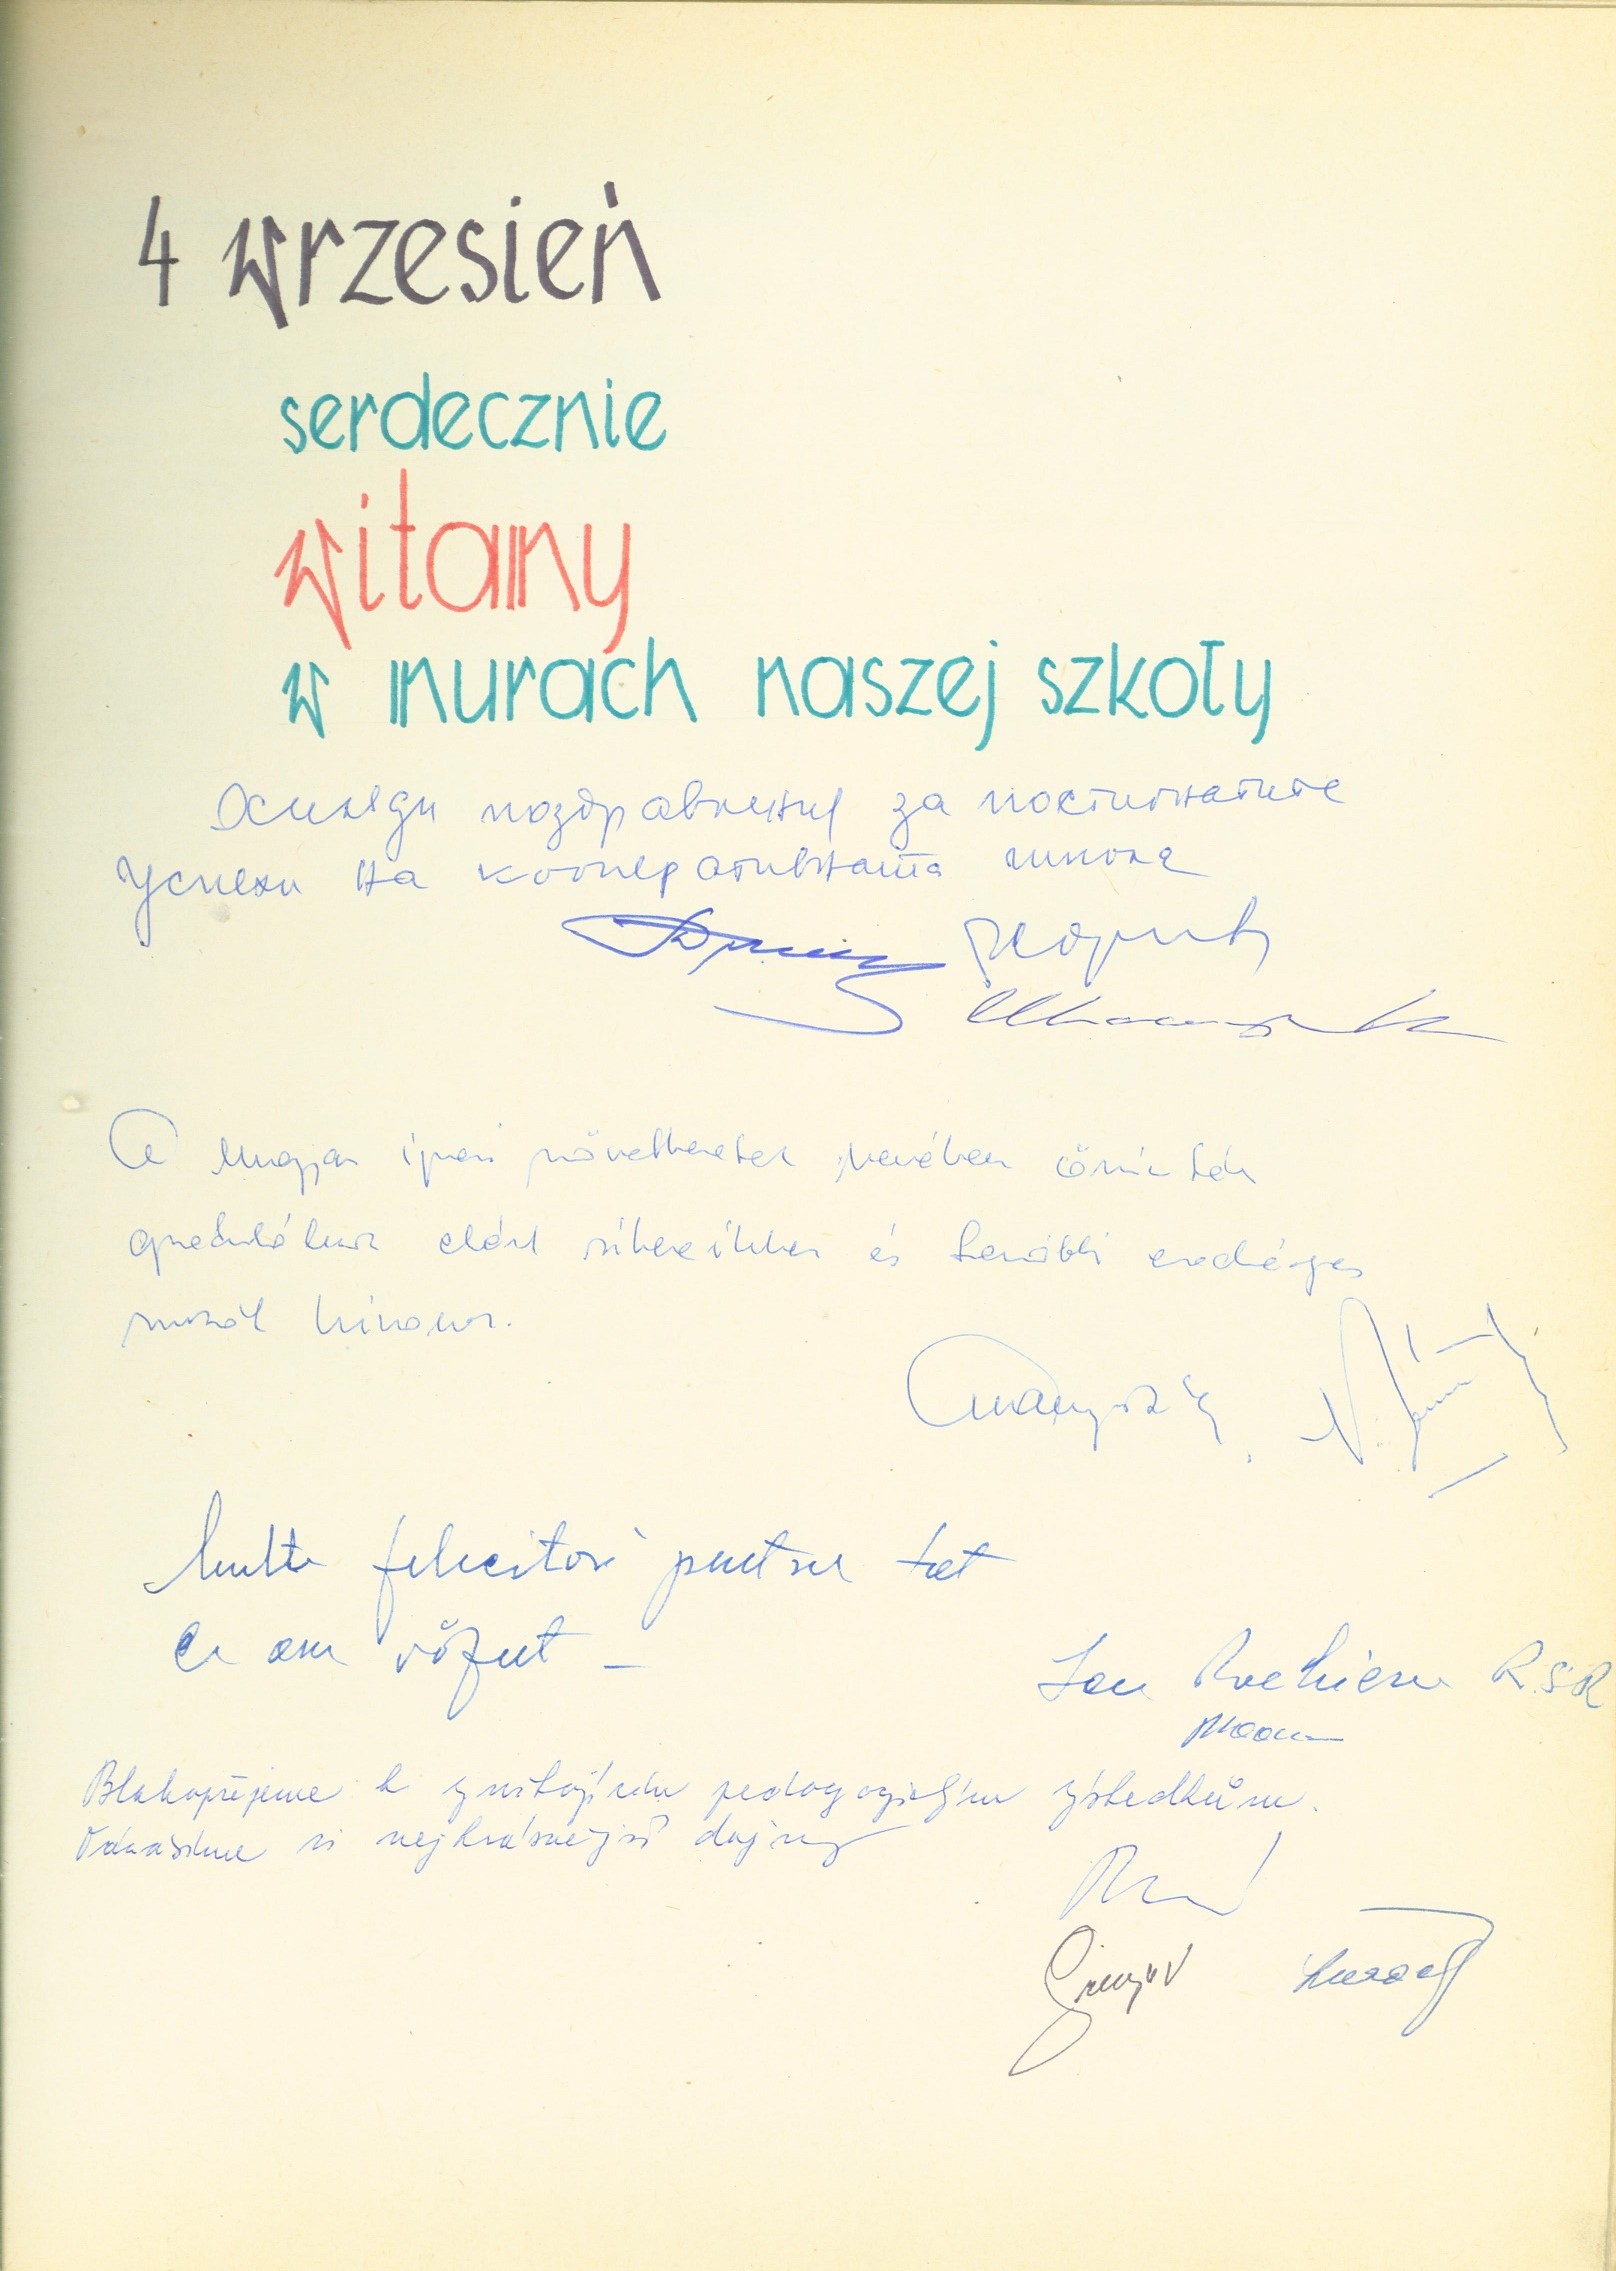 4 wrzesień
serdecznie
witamy
w murach naszej szkoły
Хиляди поздравления за постигнатите
успехи на кооперативната школа
A magyar ipari szövetkezetek nevében őszintén
gratulálunk elért sikereikhez és további eredményes
munkát kívánunk.
Multe felicitări pentru tot
ce am văzut –
Ion R S R
Blahopřejeme k vynikajícím pedagogickým výsledkům.
Odnášíme si nejkrásnější dojmy